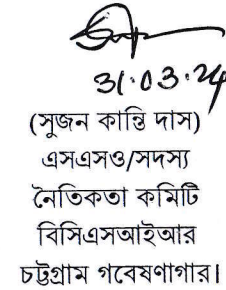 31.03.24
(সুজন কান্তি দাস)
এসএসও/সদস্য
নৈতিকতা কমিটি
বিসিএসআইআর
চট্টগ্রাম গবেষণাগার।